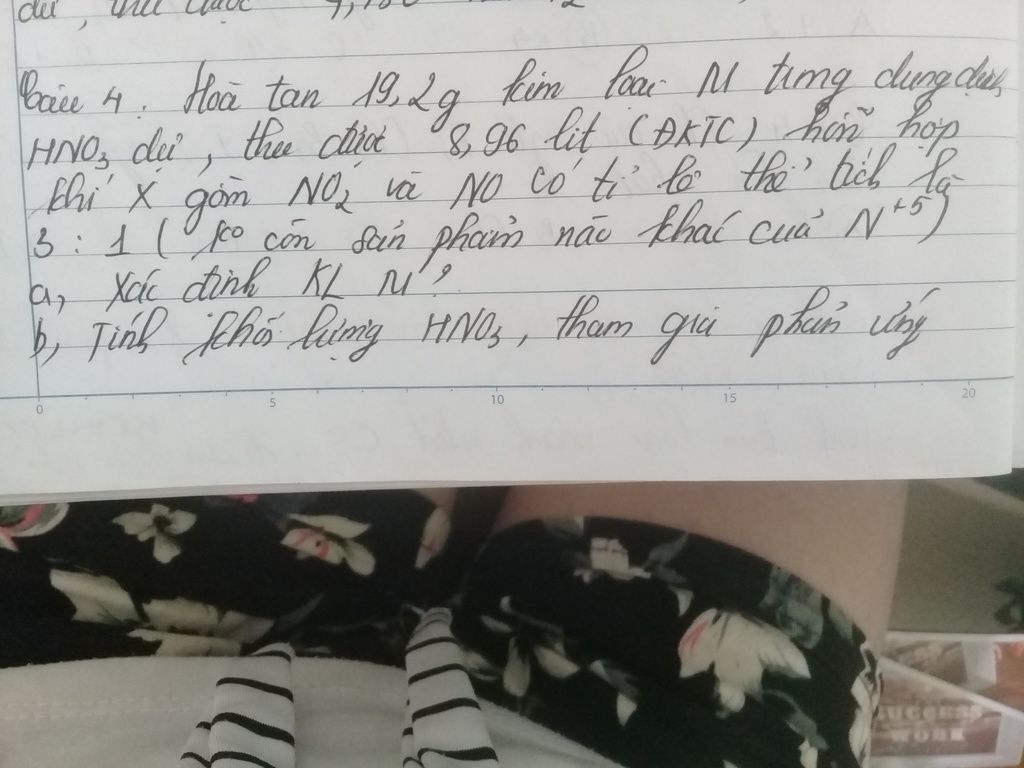 dư, thu được
Câu 4. Hoà tan 19,2g kim loại M trong dung dịch
HNO3 dư, thu được 8,96 lít (ĐKTC) hỗn hợp
khí X gồm NO2 và NO có tỉ lệ thể tích là
3 : 1 ( ko còn sản phẩm nào khác của N+5)
a, Xác định KL M?
b, Tính khối lượng HNO3, tham gia phản ứng
0 5 10 15 20
SUCCESS
WORK